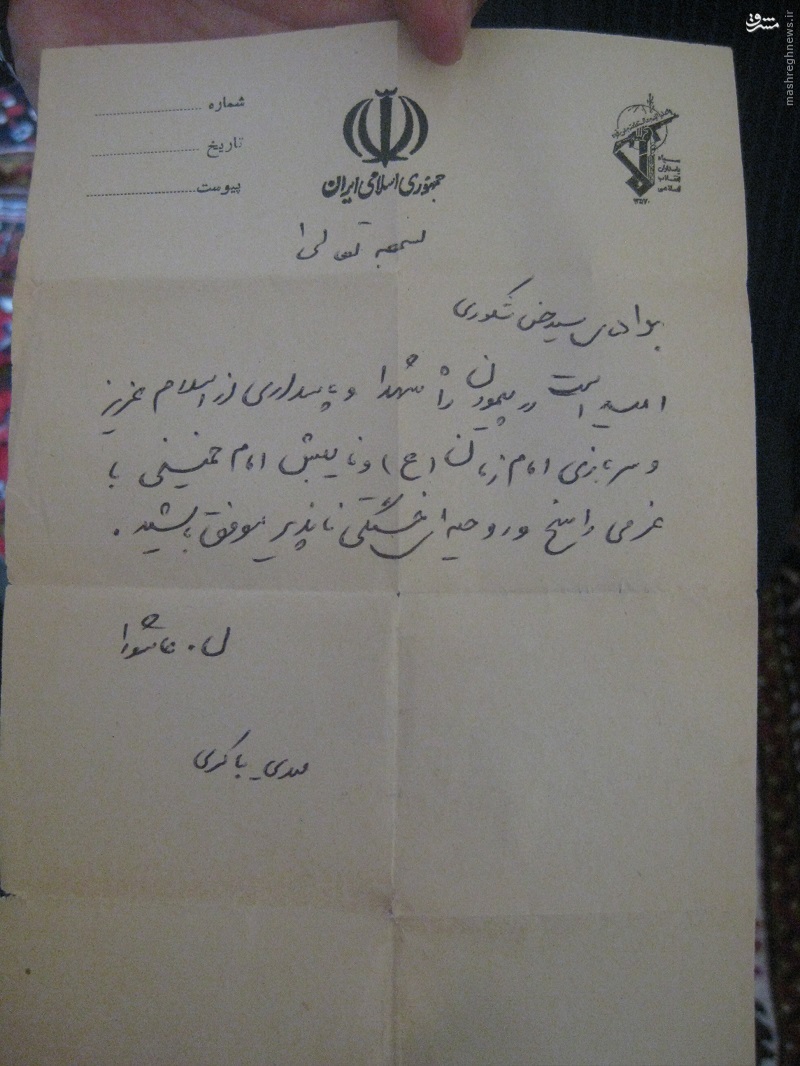 مشرق
mashreghnews.ir
شماره
تاریخ
پیوست
جمهوری اسلامی ایران
سپاه پاسداران انقلاب اسلامی
بسمه تعالی
برادر سید شکوری
امید است در پیمودن راه شهدا و پاسداری از اسلام عزیز
و سربازی امام زمان (عج) و نایبش امام خمینی با
عزمی راسخ و روحیه‌ای خستگی ناپذیر موفق باشید.
ل. عاشورا
مهدی باکری